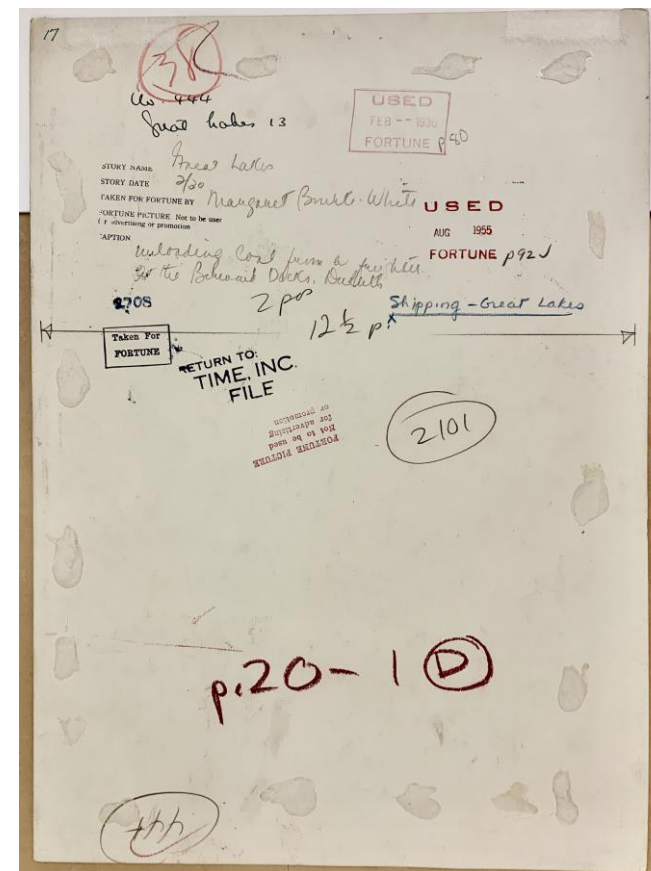 17
38
No. 444
Great Lakes 13
USED
FEB -- 1930
FORTUNE p 80
STORY NAME Great Lakes
STORY DATE 2/30
TAKEN FOR FORTUNE BY Margaret Bourke-White
FORTUNE PICTURE Not to be used
for advertising or promotion
USED
AUG 1955
FORTUNE p92
CAPTION
Unloading Coal from a freighter
at the Docks, Duluth
2708
2 pos
12 1/2 p.
Shipping - Great Lakes
x
Taken For
FORTUNE
RETURN TO:
TIME, INC.
FILE
FORTUNE PICTURE
Not to be used
for advertising
or promotion
2101
p. 20 - 1 D
444